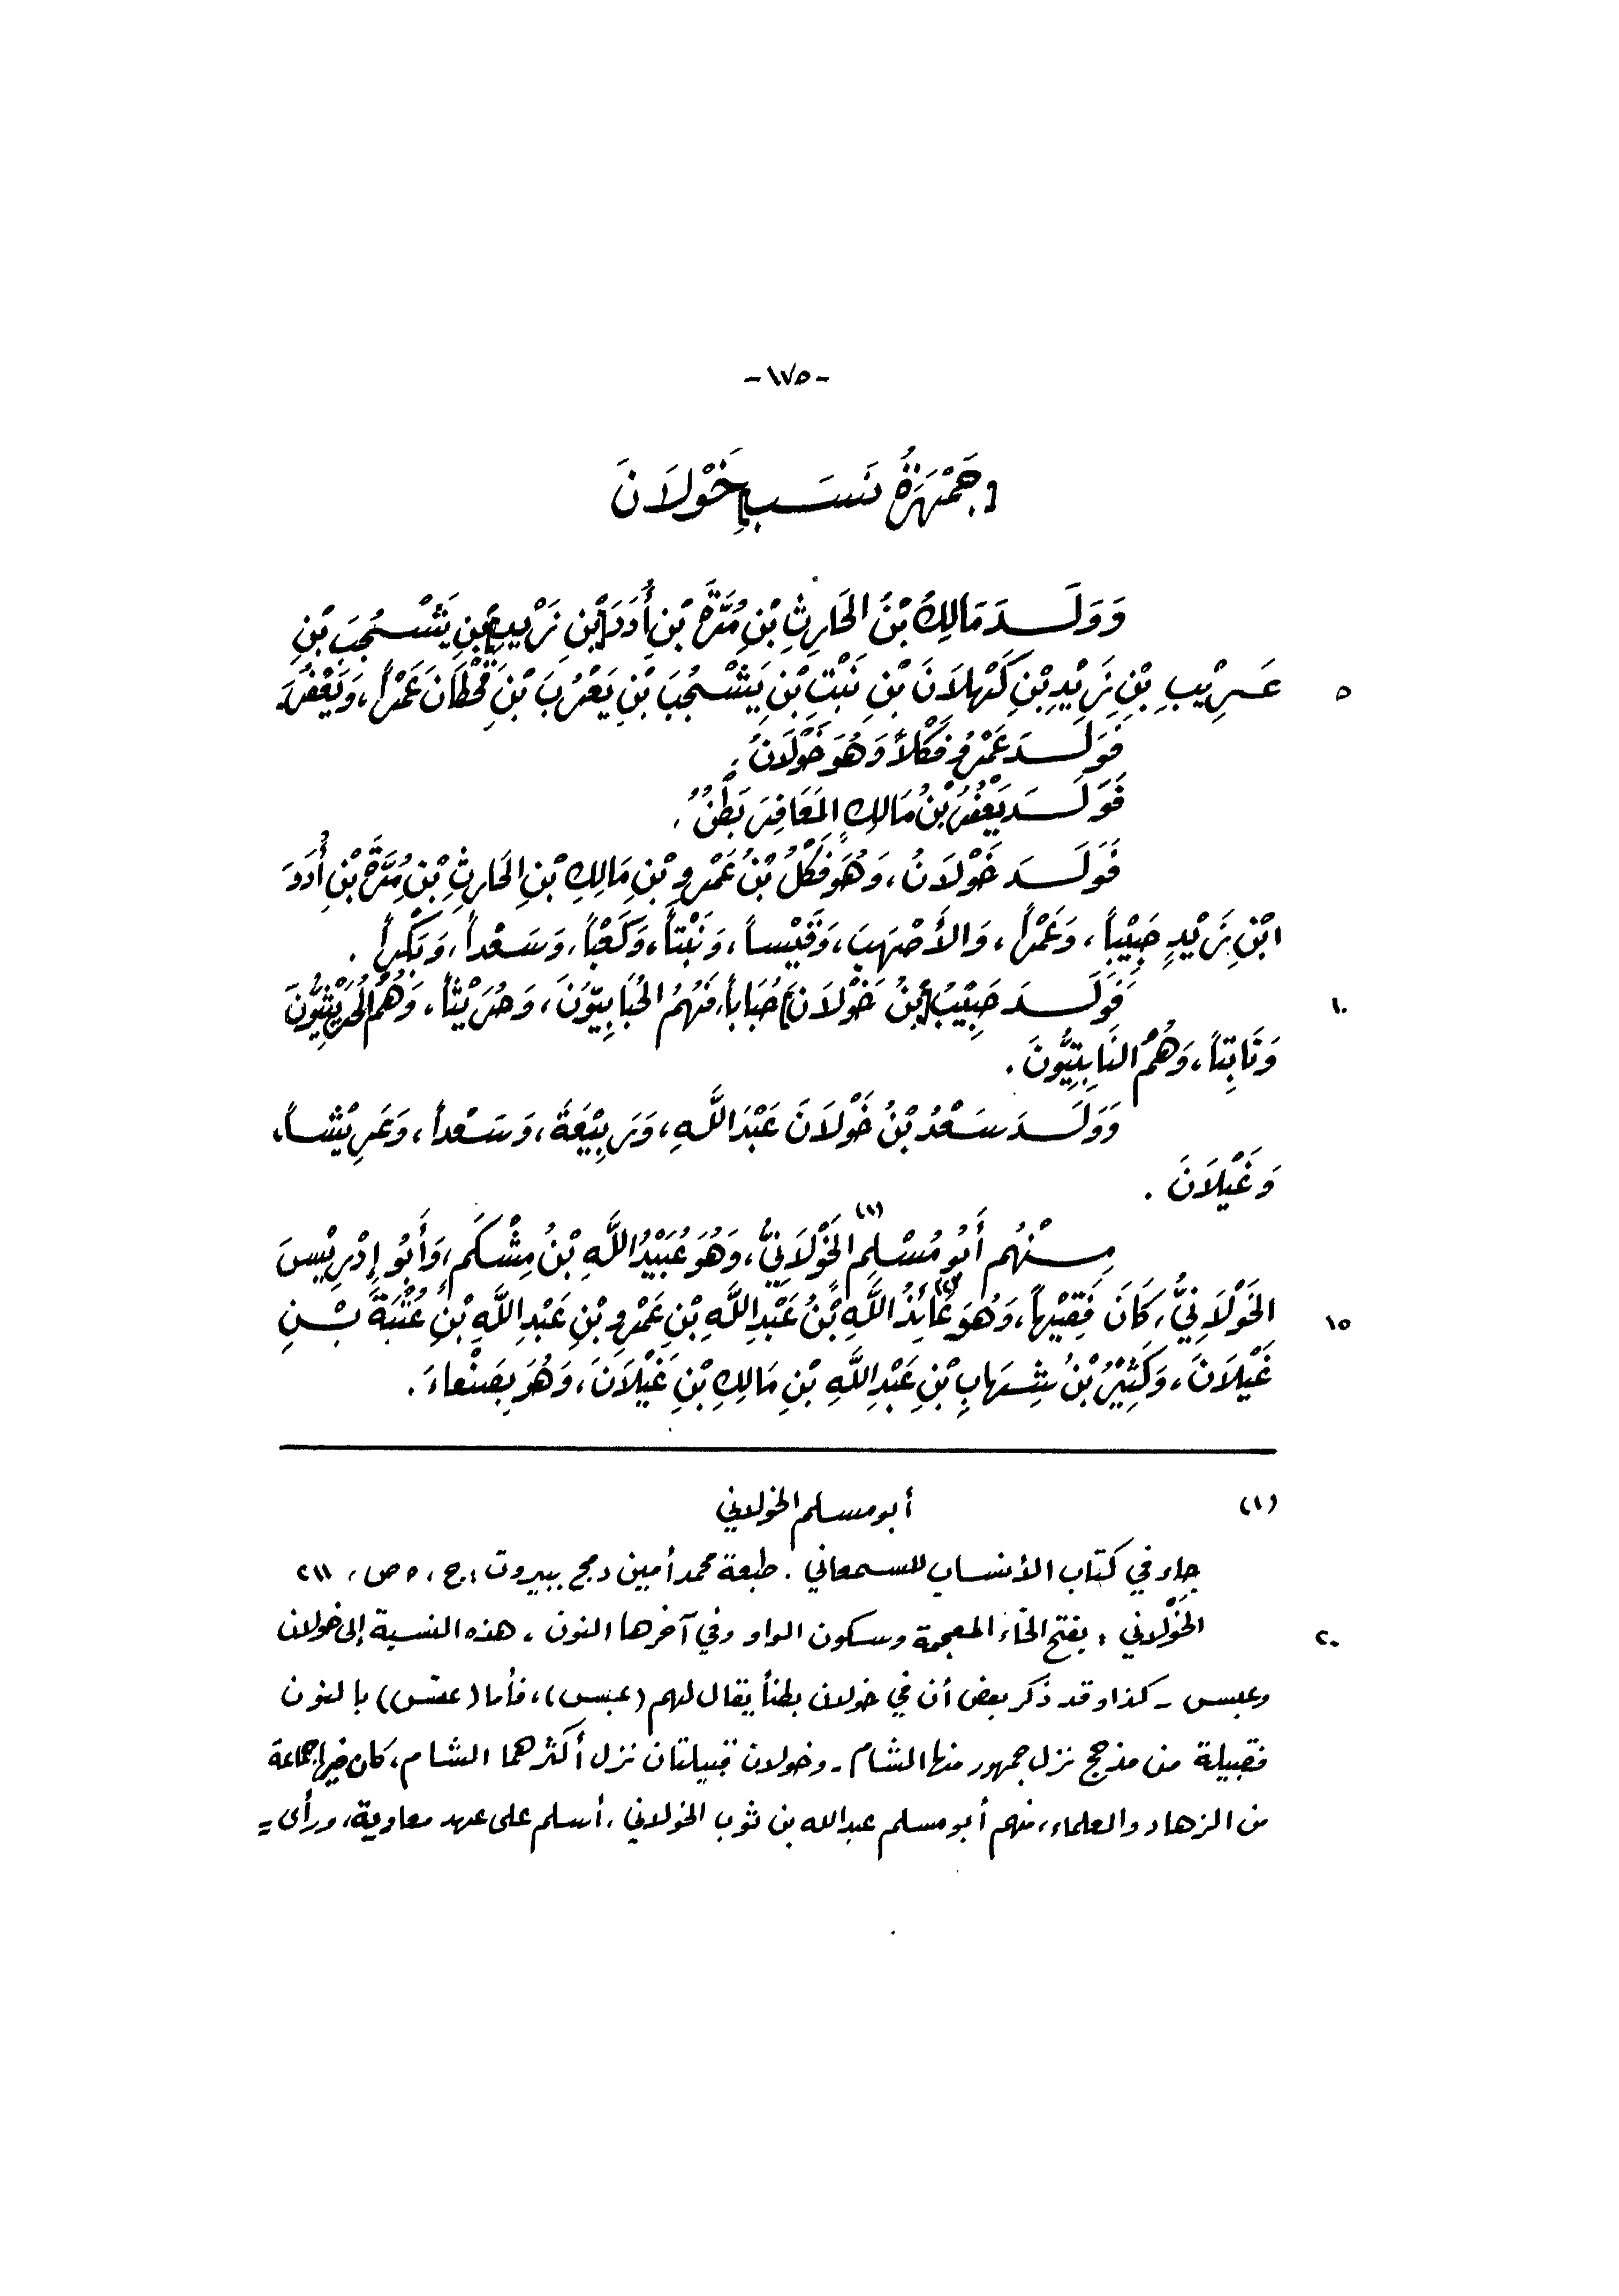 - ١٧٥ -
[جَمْهَرَةُ نَسَبِ] خَوْلَانَ
وَوَلَـدَ مَالِكُ بْنُ الحَارِثِ بْنِ مُرَّةَ بْنِ أُدَدَ [بْنِ زَيْدِ] بْنِ يَشْـجُبَ بْنِ
عَـرِيْبِ بْنِ زَيْدِ بْنِ كَهْلَانَ بْنِ نَبْتِ بْنِ يَشْـجُبَ بْنِ يَعْرُبَ بْنِ قَحْطَانَ عَمْراً، وَيَعْفُرَ.
٥
فَوَلَـدَ عَمْرٌو فَكْلاً وَهُوَ خَوْلَانُ.
فَوَلَـدَ يَعْفُرُ بْنُ مَالِكٍ المَعَافِرَ بَطْنٌ.
فَوَلَـدَ خَوْلَانُ، وَهُوَ فَكْلُ بْنُ عَمْرِو بْنِ مَالِكِ بْنِ الحَارِثِ بْنِ مُرَّةَ بْنِ أُدَدَ
ابْنِ زَيْدٍ حَبِيْباً، وَعَمْراً، وَالأَصْهَبَ، وَقَيْساً، وَنَبْتاً، وَكَعْباً، وَسَـعْداً، وَبَكْراً.
فَوَلَـدَ حَبِيْبُ [بْنُ خَوْلَانَ] حُبَاباً، فَهُمُ الحُبَابِيّوْنَ، وَحُرَيْثاً، وَهُمُ الحُرَيْثِيُّوْنَ
١٠
وَنَابِتاً، وَهُمُ النَابِتِيُّونَ.
وَوَلَـدَ سَـعْدُ بْنُ خَوْلَانَ عَبْدَ اللَّهِ، وَرَبِيْعَةَ، وَسَـعْداً، وَعَرِيْشـاً،
وَغَيْلَانَ.
مِـنْهُم أَبُو مُسْـلِمٍ الخَوْلَانِيُّ،(١) وَهُوَ عُبَيْدُ اللَّهِ بْنُ مِشْـكَمٍ، وَأَبُو إِدْرِيْسَ
الخَوْلَانِيُّ،(٢) كَانَ فَقِيْهاً، وَهُوَ عَائِذُ اللَّهِ بْنُ عَبْدِ اللَّهِ بْنِ عَمْرِو بْنِ عَبْدِ اللَّهِ بْنِ عُتْبَةَ بْـنِ
١٥
غَيْلَانَ، وَكَثِيْرُ بْنُ شِـهَابِ بْنِ عَبْدِ اللَّهِ بْنِ مَالِكِ بْنِ غَيْلَانَ، وَهُوَ بِصَنْعاءَ.
(١) أبو مسلم الخولاني
جاء في كتاب الأنساب للسمعاني. طبعة محمد أمين دمج ببيروت: ج، ٥ ص، ٢١١
الخَوْلاني: بفتح الخاء المعجمة وسكون الواو وفي آخرها النون، هذه النسبة إلى خولان
٢٠
وعبس - كذا وقد ذكر بعض أن في خولان بطناً يقال لهم (عبس)، فأما (عنس) بالنون
فقبيلة من مذحج نزل جمهور منها الشام - وخولان قبيلتان نزل أكثرهما الشام، كان فيها جماعة
من الزهاد والعلماء، منهم أبو مسلم عبدالله بن ثوب الخولاني، أسلم على عهد معاوية، ورأى =